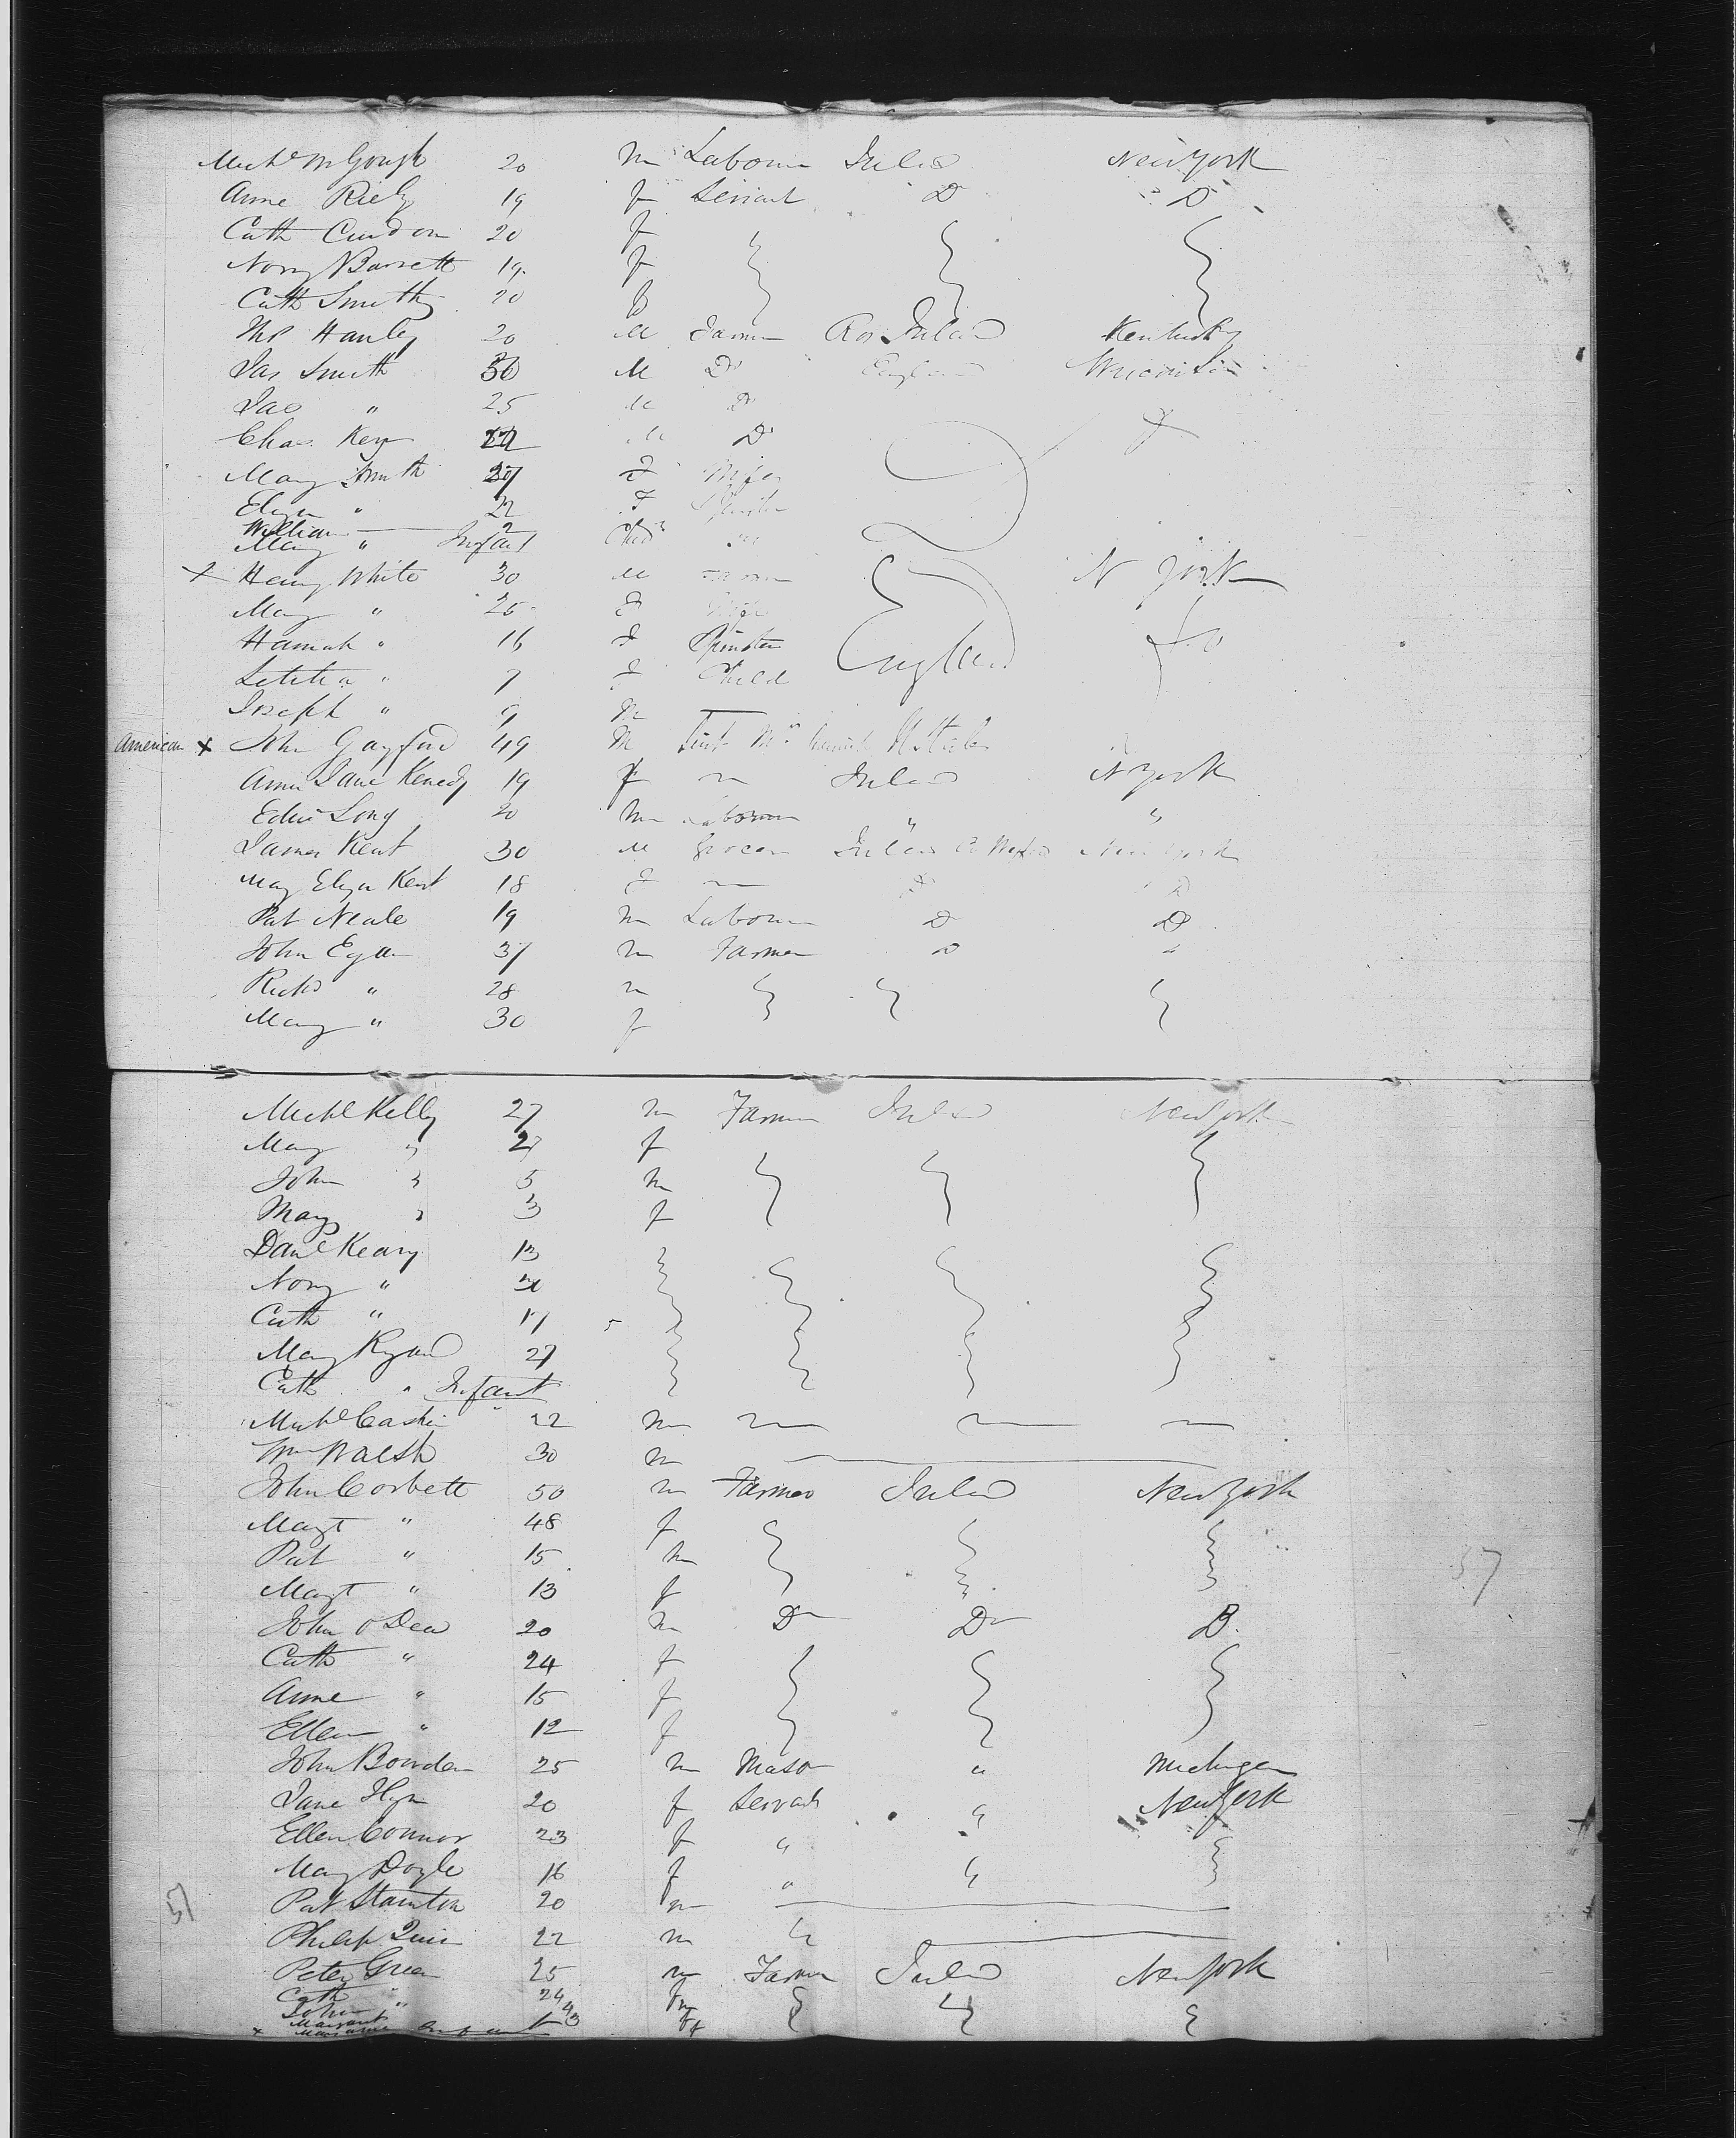 Michl McGough 20 m Labourer Ireld New York
Anne Riely 19 f Servant Do Do
Cath Condon 20 f
Nory Barrett 19 f
Cath Smith 20 f
Ths Hanley 20 M Farmer Ros Ireland Kentucky
Jas Smith 30 M Do England Wisconsin
Jas " 25 M Do
Chas Key 22 M Do
Mary Smith 27 F Wife
Eliza " 22 F Spinster
William 2
Mary " Infant Child
x Henry White 30 M Farmer England N York
Mary " 25 F Wife
Hannah " 16 F Spinster
Letitia " 7 F Child
Joseph " 9 M
American x John Gayford 49 M
Anne Jane Kenedy 19 f Ireland N York
Edwd Long 20 m Labourer " "
James Kent 30 M Grocer Ireland Co Wexford New York
Mary Eliza Kent 18 F Do Do
Pat Neale 19 m Labourer Do Do
John Egan 37 m Farmer Do
Richd " 28 m
Mary " 30 f
Michl Kelly 27 m Farmer Ireld New York
Mary " 27 f
John " 5 m
Mary " 3 f
Danl Keary 13
Nory " 30
Cath " 17
Mary Ryan 27
Cath " Infant
Michl Cashin 22 m
Wm Walsh 30 m
John Corbett 50 m Farmer Ireld New York
Margt " 48 f
Pat " 15 m
Margt " 13 f
John O Dea 20 m Do Do Do
Cath " 24 f
Anne " 15 f
Ellen " 12 f
John Bowden 25 m Mason " Michigan
Jane 20 f Servant " New York
Ellen Connor 23 f "
Mary Doyle 16 f " "
Pat Staunton 20 m
Philip Quin 22 m
Peter Green 25 m Farmer Ireld New York
Cath " 24 f
John " 4 m
Margaret 3 f
Infant
57
57